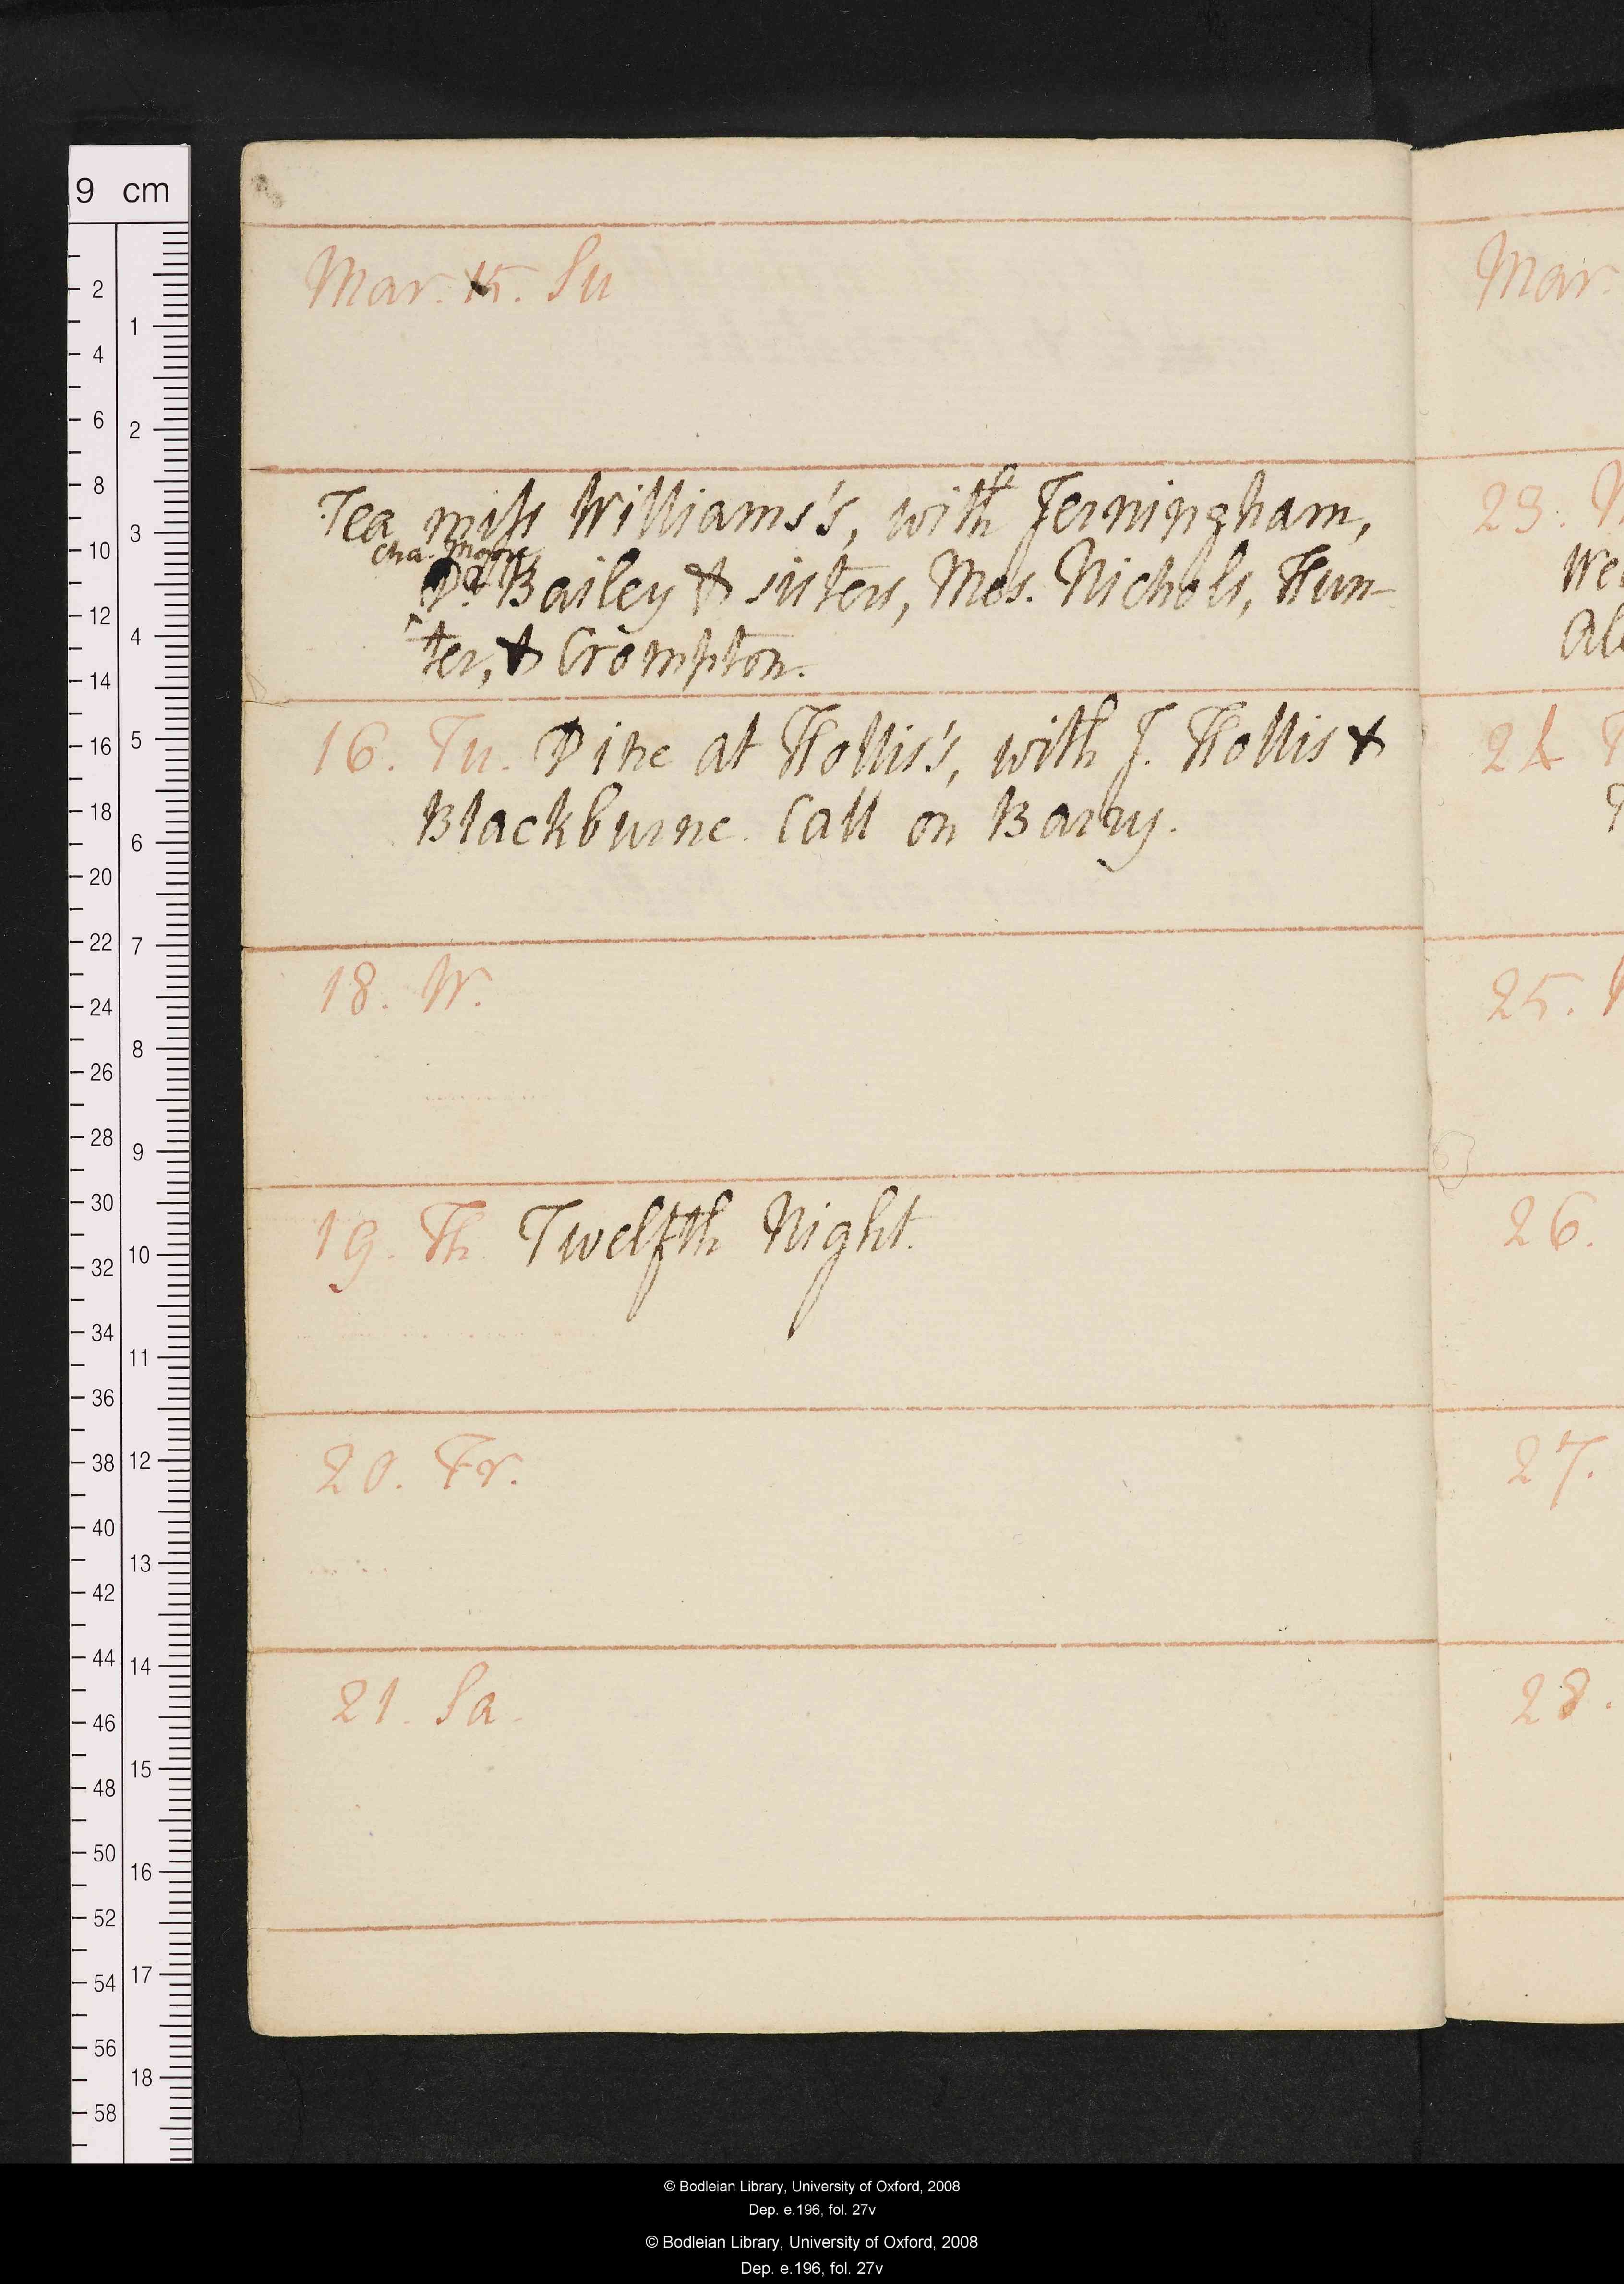 Mar. 15. Su
Tea miss Williams's, with Jerningham,
Cha. Moore,
Dr Bailey & sisters, Mes. Nichols, Hun-
ter, & Crompton.
16. Tu. Dine at Hollis's, with J. Hollis &
Blackburne. Call on Barry.
18. W.
19. Th. Twelfth Night.
20. Fr.
21. Sa.
Mar.
23.
24
25.
26.
27.
28.
9 cm
2
4
6
8
10
12
14
16
18
20
22
24
26
28
30
32
34
36
38
40
42
44
46
48
50
52
54
56
58
1
2
3
4
5
6
7
8
9
10
11
12
13
14
15
16
17
18
© Bodleian Library, University of Oxford, 2008
Dep. e.196, fol. 27v
© Bodleian Library, University of Oxford, 2008
Dep. e.196, fol. 27v